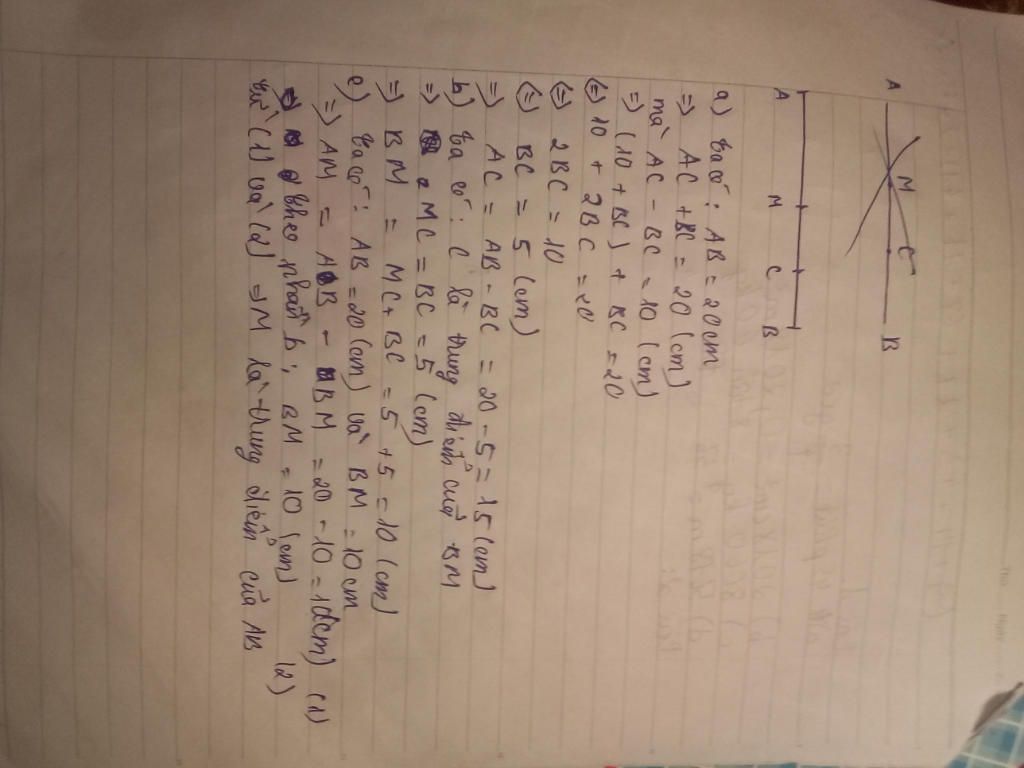 A M C B
A M C B
a) Ta có: AB = 20cm
=> AC + BC = 20 (cm)
mà AC - BC = 10 (cm)
=> (10 + BC) + BC = 20
(=) 10 + 2BC = 20
(=) 2BC = 10
(=) BC = 5 (cm)
=> AC = AB - BC = 20 - 5 = 15 (cm)
b) Ta có: C là trung điểm của BM
=> MC = BC = 5 (cm)
=> BM = MC + BC = 5 + 5 = 10 (cm)
c) Ta có: AB = 20 (cm) và BM = 10 cm
=> AM = AB - BM = 20 - 10 = 10(cm) (1)
theo phần b; BM = 10 (cm) (2)
Từ (1) và (2) => M là trung điểm của AB